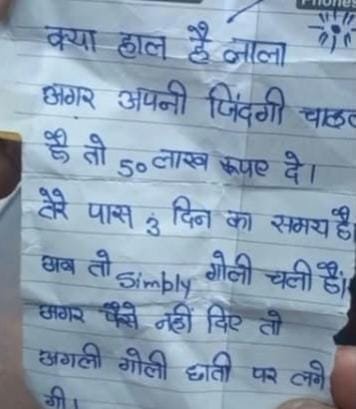 Phones
क्या हाल है लाला
अगर अपनी जिंदगी चाहत
है तो 50 लाख रूपए दे।
तेरे पास 3 दिन का समय है
अब तो Simbly गोली चली हैं।
अगर पैसे नहीं दिए तो
अगली गोली छाती पर लगे
गी।